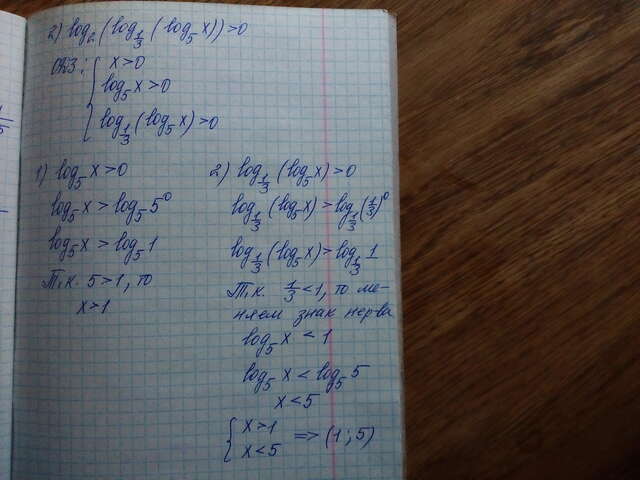 2) log₂(log_{1/3}(log₅x))>0
ОДЗ: { x>0
log₅x>0
log_{1/3}(log₅x)>0
1) log₅x>0
log₅x>log₅5⁰
log₅x>log₅1
Т.к. 5>1, то
x>1
2) log_{1/3}(log₅x)>0
log_{1/3}(log₅x)>log_{1/3}(1/3)⁰
log_{1/3}(log₅x)>log_{1/3}1
Т.к. 1/3<1, то ме-
няем знак нерва
log₅x<1
log₅x<log₅5
x<5
{ x>1
x<5 => (1;5)